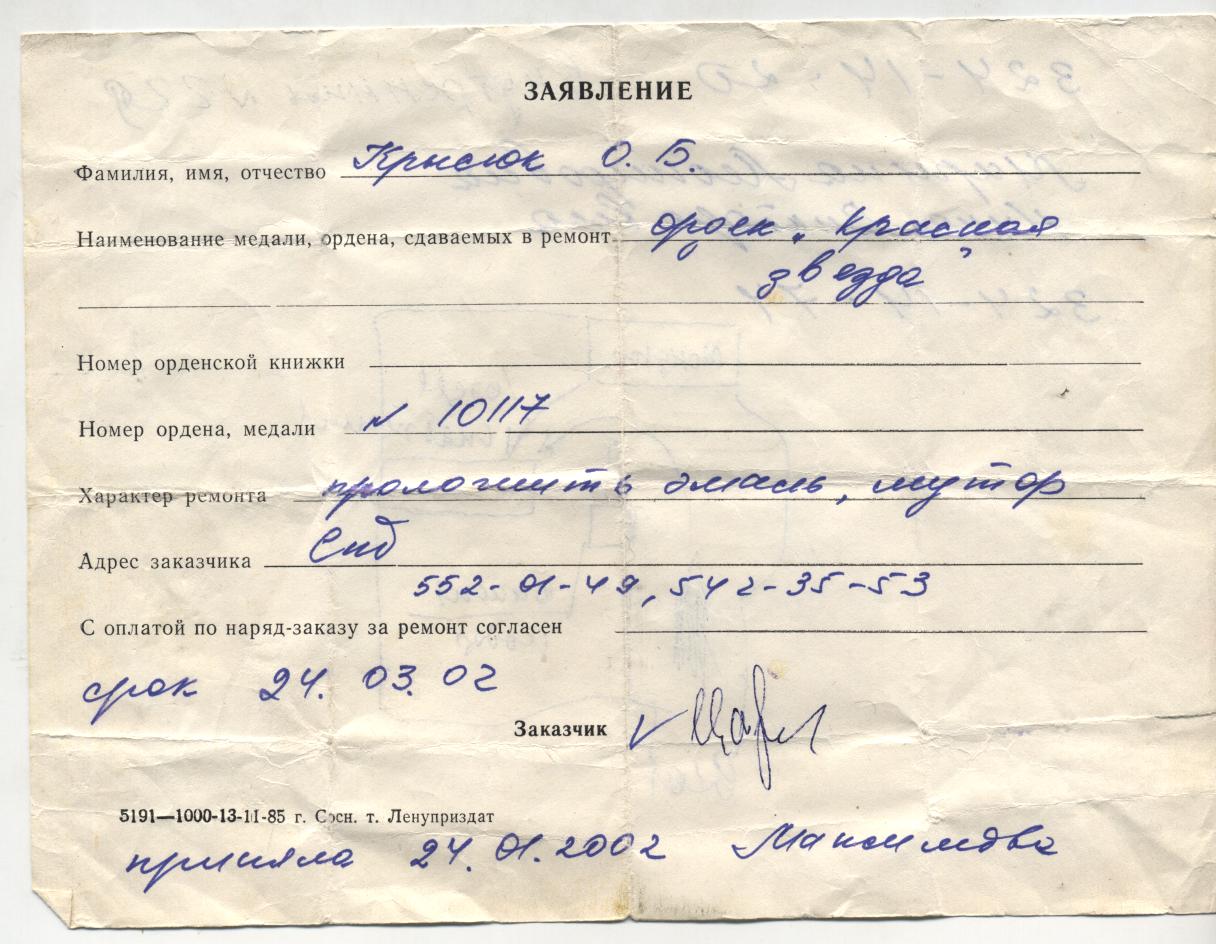 ЗАЯВЛЕНИЕ
Фамилия, имя, отчество Крысюк О. Б.
Наименование медали, ордена, сдаваемых в ремонт орден „Красная
звезда"
Номер орденской книжки
Номер ордена, медали N 10117
Характер ремонта эмаль,
Адрес заказчика Спб
552-01-49, 542-35-53
С оплатой по наряд-заказу за ремонт согласен
срок 24. 03. 02
Заказчик
5191—1000-13-11-85 г. Сосн. т. Ленуприздат
приняла 24. 01. 2002 Максимова